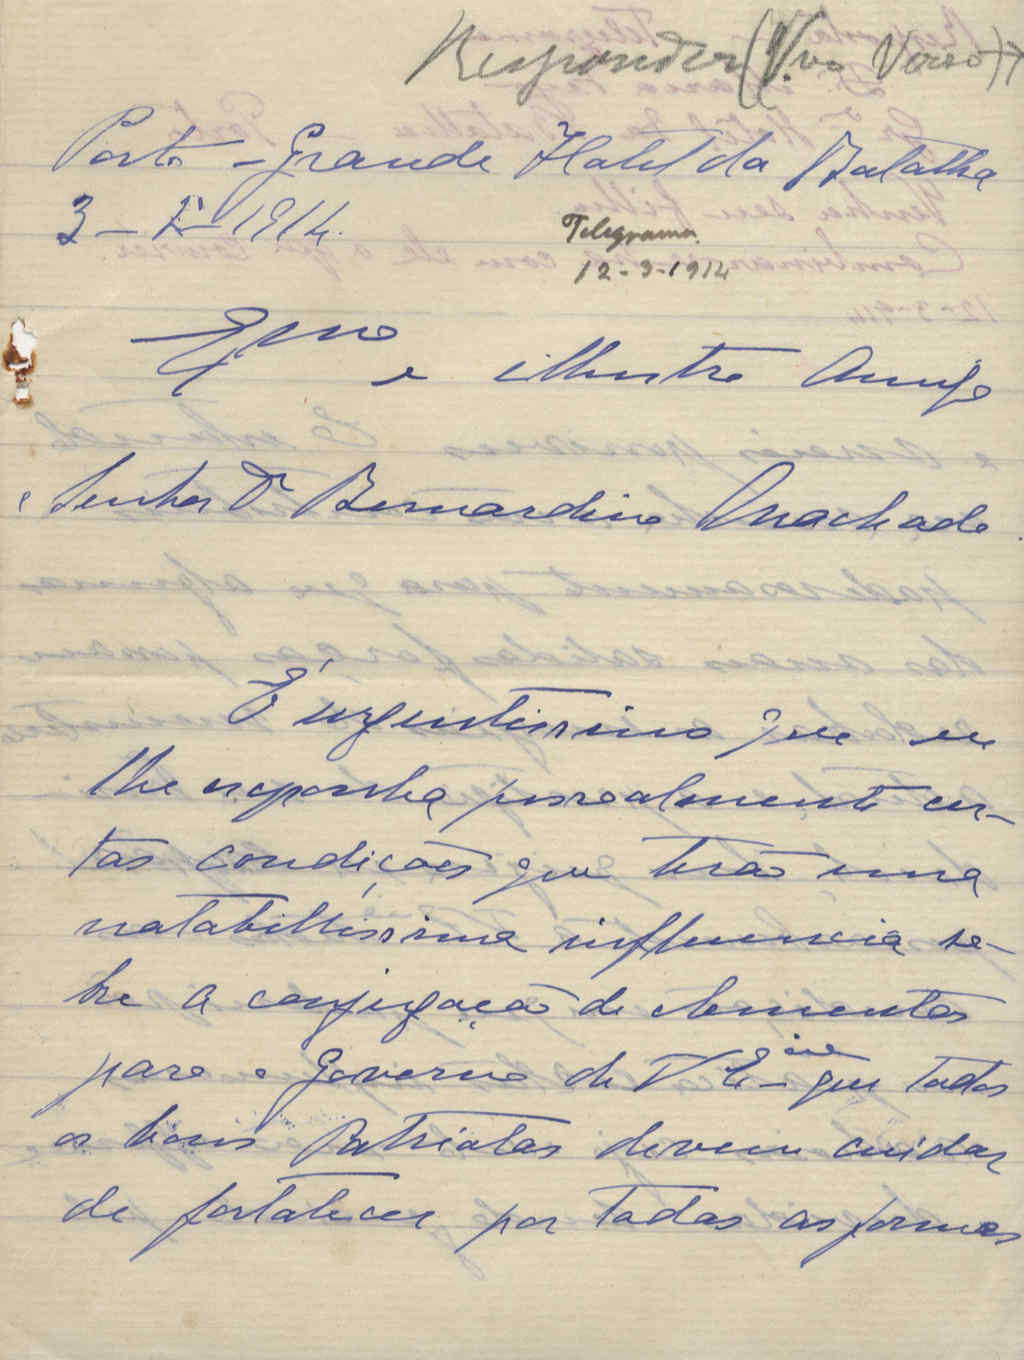 Responder (V. no Verso)
Porto - Grande Hotel da Batalha
3 - 1914.
Telegrama
12-3-1914
Exmo
e illustre Amigo
e Senhor Dr Bernardino Machado
É urgentissimo que eu
lhe exponha pessoalmente cer-
tas condições que terão uma
notabilissima influencia so-
bre a conjugação de elementos
para o Governo de V Exª que todos
os bons Patriotas devem cuidar
de fortalecer por todas as formas